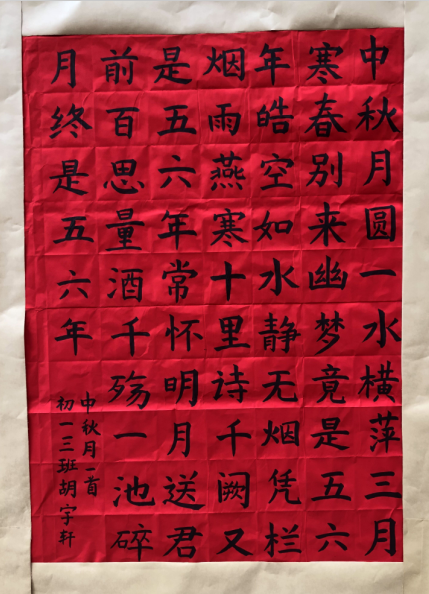 中秋月圆一水横萍三月
寒春别来幽梦竟是五六
年皓空如水静无烟凭栏
烟雨燕寒十里诗千阙又
是五六年常怀明月送君
前百思量酒千殇一池碎
月终是五六年
中秋月一首
初一三班胡字轩